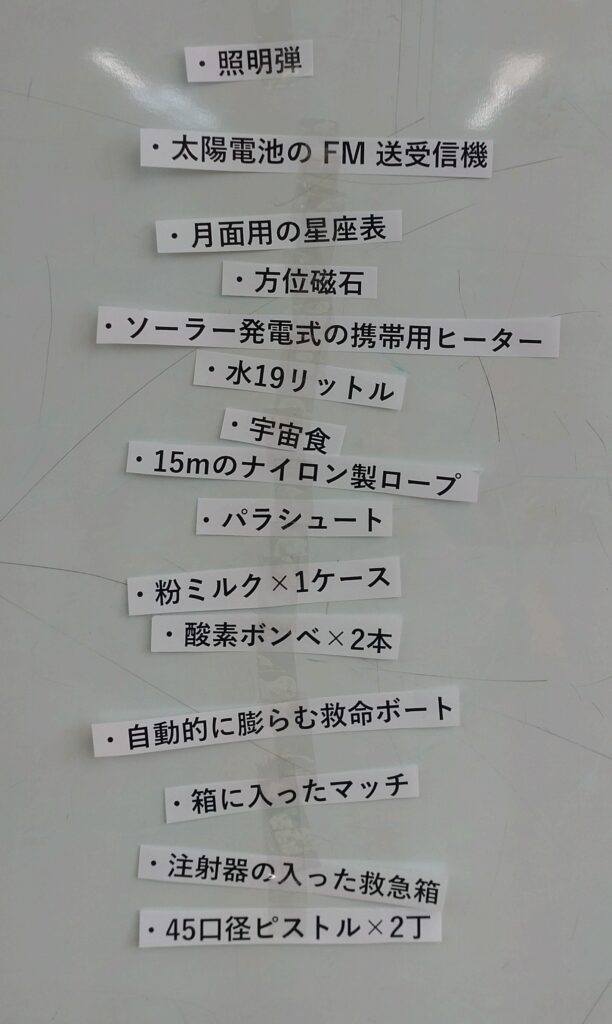 ・照明弾
・太陽電池の FM 送受信機
・月面用の星座表
・方位磁石
・ソーラー発電式の携帯用ヒーター
・水19リットル
・宇宙食
・15mのナイロン製ロープ
・パラシュート
・粉ミルク×1ケース
・酸素ボンベ×2本
・自動的に膨らむ救命ボート
・箱に入ったマッチ
・注射器の入った救急箱
・45口径ピストル×2丁